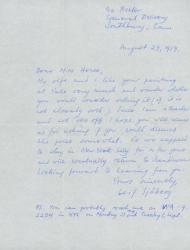 c/o Rector
General Delivery
Southbury, Conn
August 29, 1959.
Dear Miss
My wife and I like your painting
at Yale very much and wonder whether
you would consider selling it, if it is
not already sold, since I am a teacher
and not well off I hope you will excuse
us for asking if you would discuss
the price somewhat. We are supposed
to stay in New York City for a year
and will eventually return to
Looking forward to hearing from you.
Yours sincerely,
Leif Sjöberg
PS. You can probably reach me on
in NYC on Monday 31 and Tuesday 1, Sept.